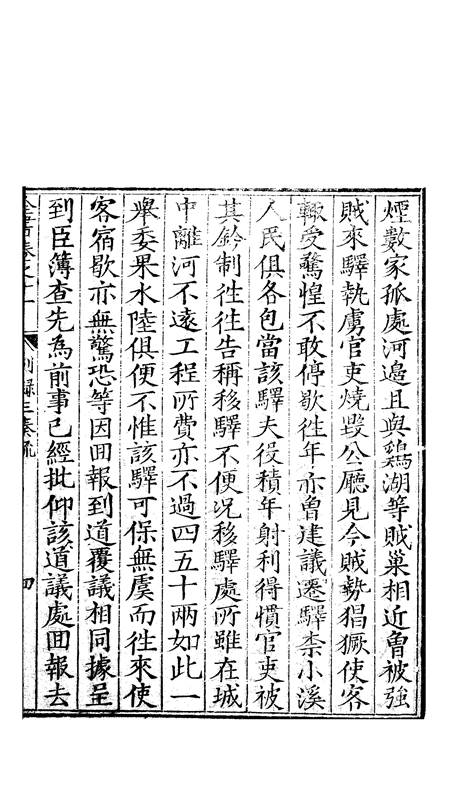 煙數家孤處河邉且與鷄湖等賊巢相近曾被強
賊來驛執虜官吏燒毀公廳見今賊勢猖獗使客
輙受驚惶不敢停歇徃年亦曾建議遷驛柰小溪
人民俱各包當該驛夫役積年射利得慣官吏被
其鈐制徃徃告稱移驛不便况移驛處所雖在城
中離河不遠工程所費亦不過四五十兩如此一
舉委果水陸俱便不惟該驛可保無虞而徃來使
客宿歇亦無驚恐等因囬報到道覆議相同據呈
到臣簿查先為前事已經批仰該道議處囬報去
全書卷之十一 別錄三奏疏 四